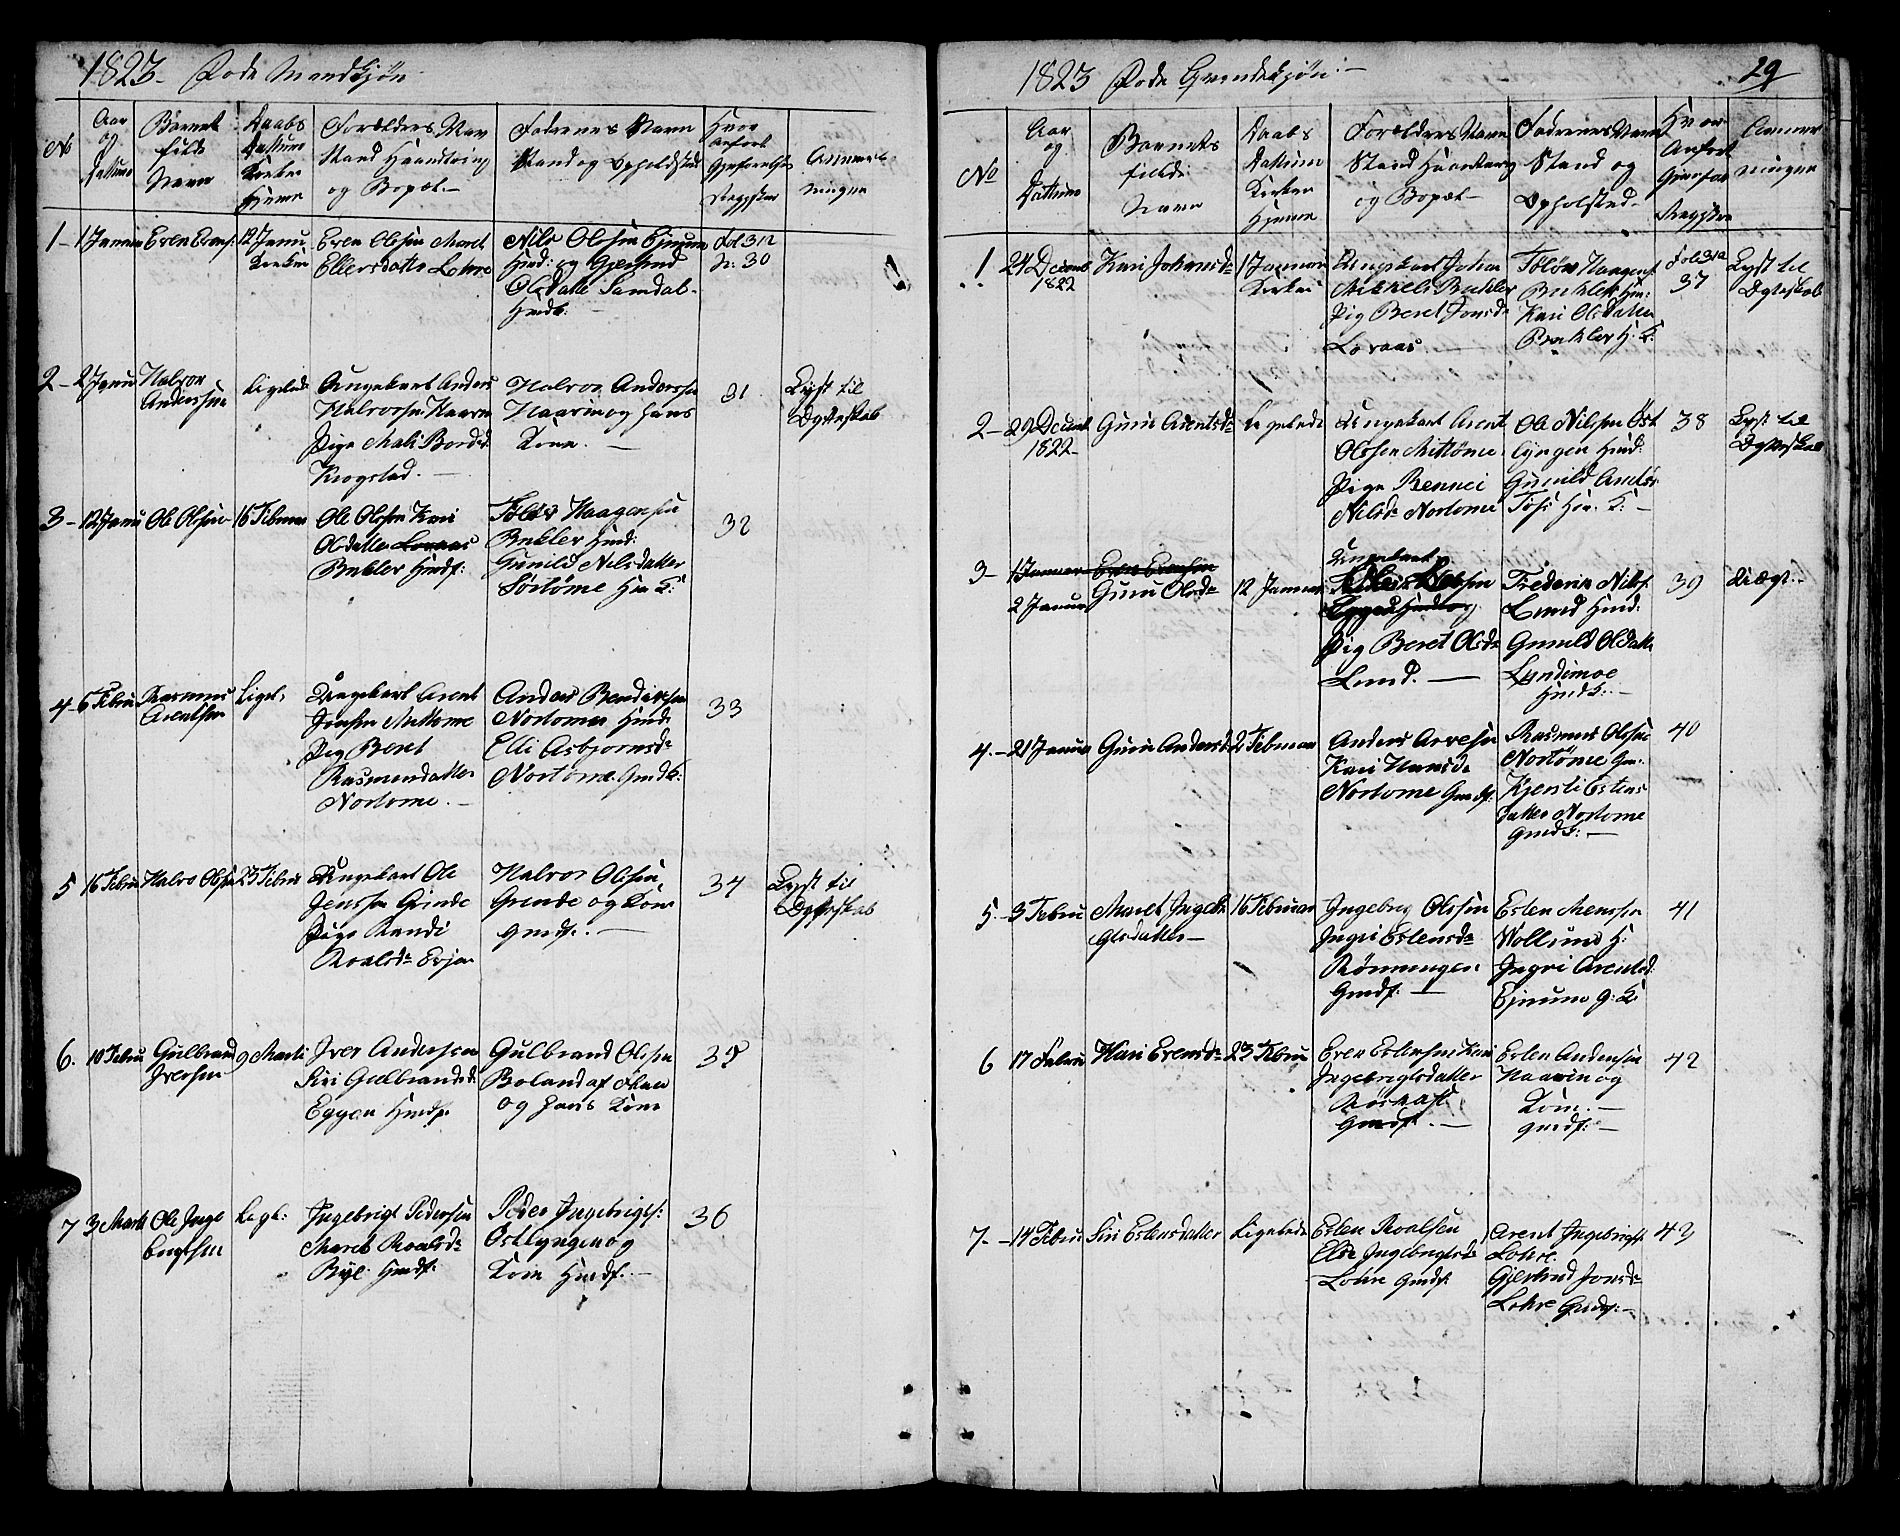 1823 - Føde Mandkjøn
No
Aar og Dattum
Barnets fulde Navn
Daabs Dattum Kirken Hjeme
Forældres Navn Stand Haandtering og Bopæl -
Fadrenes Navn Stand og Opholdsted
Hvor anført Registter
Anmerkninger
1 - 1 Januar Even Evens:
12 Janu Kirken
Even Olsen Maret
Ellersdatter Lohre
Nils Olssen Ejnum
Hmd: og Gjertrud
Olsdatte Samdal -
Hmdk: -
Fol 312
N: 30
2 - 2 Janu Halvor
Anderssen
Ligeledes
Ungekarl Anders
Halvorsen Haarin
Pige Mali Bordsd
Krogstad. -
Halvor Anderssen
Haarin og hans
Kone. -
31
Lyst til
Dgteskab
3 - 12 Janu Ole Olsen
16 Februar
Ole Olssen Kari
Olsdatter Loraas
Bukler Hmdf:
Tolløv Haagensen
Bukler Hmd:
Gunild Nilsdatter
Sørtømme Hm K:
32
4 - 6 Febru Rasmus
Arentsen
Ligel:
Ungekarl Arent
Jenssen Mittome
Pig Beret
Rasmusdatter
Nortome. -
Anders Bendixsen
Nortomme Hmd:
Elli Asbjornsd
Nortøme Gmdk:
33
5 16 Febru Halvor Olsen
23 Febru
Ungekarl Ole
Jenssen Grinde
Pige Randi
Roalsd Evjen
Halvor Olssen
Grende og Kone
gmdf: -
34
Lyst til
Dgteskab
6. 10 Febru Gulbrand
Iversen
9 Marti
Iver Anderssen
Siri Gulbrandsd
Eggen Hmdf:
Gulbrand Olssen
Boland af
og hans Kone
35
7 3 Marti Ole Inge
brigtsen
Ligel:
Ingebrigt Pedersen
Maret Roalsd
Bye Hmdf:
Peder Ingebrigts:
Ostlyngen og
Kone Hmdf. -
36
1823 Føde Qvindekjøn: -
29
No
Aar og Dattum
Barnets fulde Navn
Daabs Dattum Kirken Hjeme
Forældres Navn Stand Haanterng og Bopæl -
Fadrenes Navn Stand og Opholsted. -
Hvor Anført Registre
Anmerninger
1 24 Decemb
1822
Kari Johansd
1 Januar
Kirken
Ungekarl Johan
Mikkels Bukler
Pig Beret Jonsd
Loraas
Tolløv Haagens:
Bukler Hm:
Kari Olsdatter
Bukler H: K:
Fol 312
37
Lyst til
Dgteskab
2 - 29 Decemb
1822 -
Guru Arentsd
Ligeledes
Ungekarl Arent
Olssen Mittöme
Pige Rennei
Nilsd Nortome
Ole Nilssen Øst
lyngen Hmd:
Gunild Arntsd
Tofs Hm. K: -
38
Lyst til
Dgteskab
3 - 1 Januar Even Evensen
2 Januar Guru Olsd
12 Januar
Ungekarl
Eggen Hmd og
Pig Beret Olsd
Lund. -
Frederik Nilss
Lund Hmd:
Gunild Olsdatte
Lyndimoe
Hmdk: -
39
Uægt: -
4. - 21 Januar Guru Andersd
2 Februar
Anders Arvesen
Kari Hansd
Nortome Gmdf:
Rasmus Olssen
Nortöme Gm:
Kjersti Estens
datter Nortome
Gmdk: -
40
5. - 3 Febru Maret Ingebr
gtsdatter -
16 Februar
Ingebrig Olssen
Ingri Estensd
Rønningen
Gmdf: -
Esten Menssen
Wollum H:
Ingri Arentsd:
Ejnum G: K:
41
6 17 Febru Kari Evensd
23 Febru
Even Estensen Kari
Ingebrigtsdatter
Gmdf: -
Esten Anderssen
Haarin og
Kone. -
gmdf: -
42
7. - 14 Febru Siri Estensdatter
Ligeledes
Esten Roalsen
Else Ingebrigtsd
Lohre Gmdf:
Arent Ingebrigts
Lohre.
Gjertrud Jonsd
Lohre Gmdf: -
43